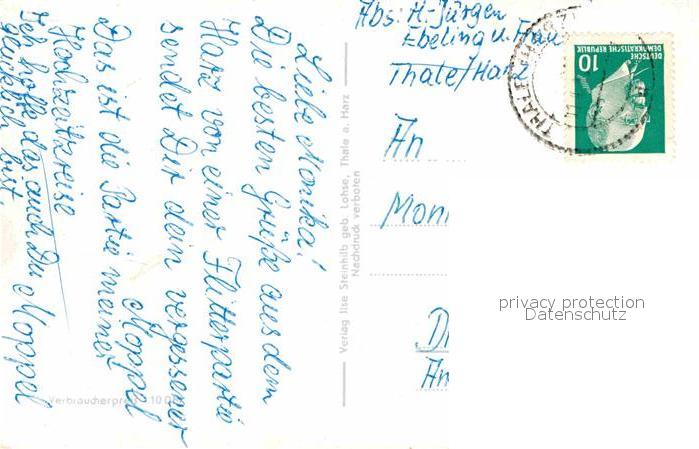 Liebe Monika!
Die besten Grüße aus dem
Harz von einer Flitterpartie
sendet Dir dein vergessener
Moppel
Das ist die Partie meiner
Hochzeitsreise
Ich hoffe das auch Du
glücklich bist. Moppel
Verbraucherpreis
Verlag Ilse Steinhilb geb. Lohse, Thale a. Harz
Nachdruck verboten
Abs: H.-Jürgen
Ebeling u. Frau
Thale/Harz
10
DEUTSCHE
DEMOKRATISCHE REPUBLIK
THALE
An
Moni
privacy protection
Datenschutz
D
Am